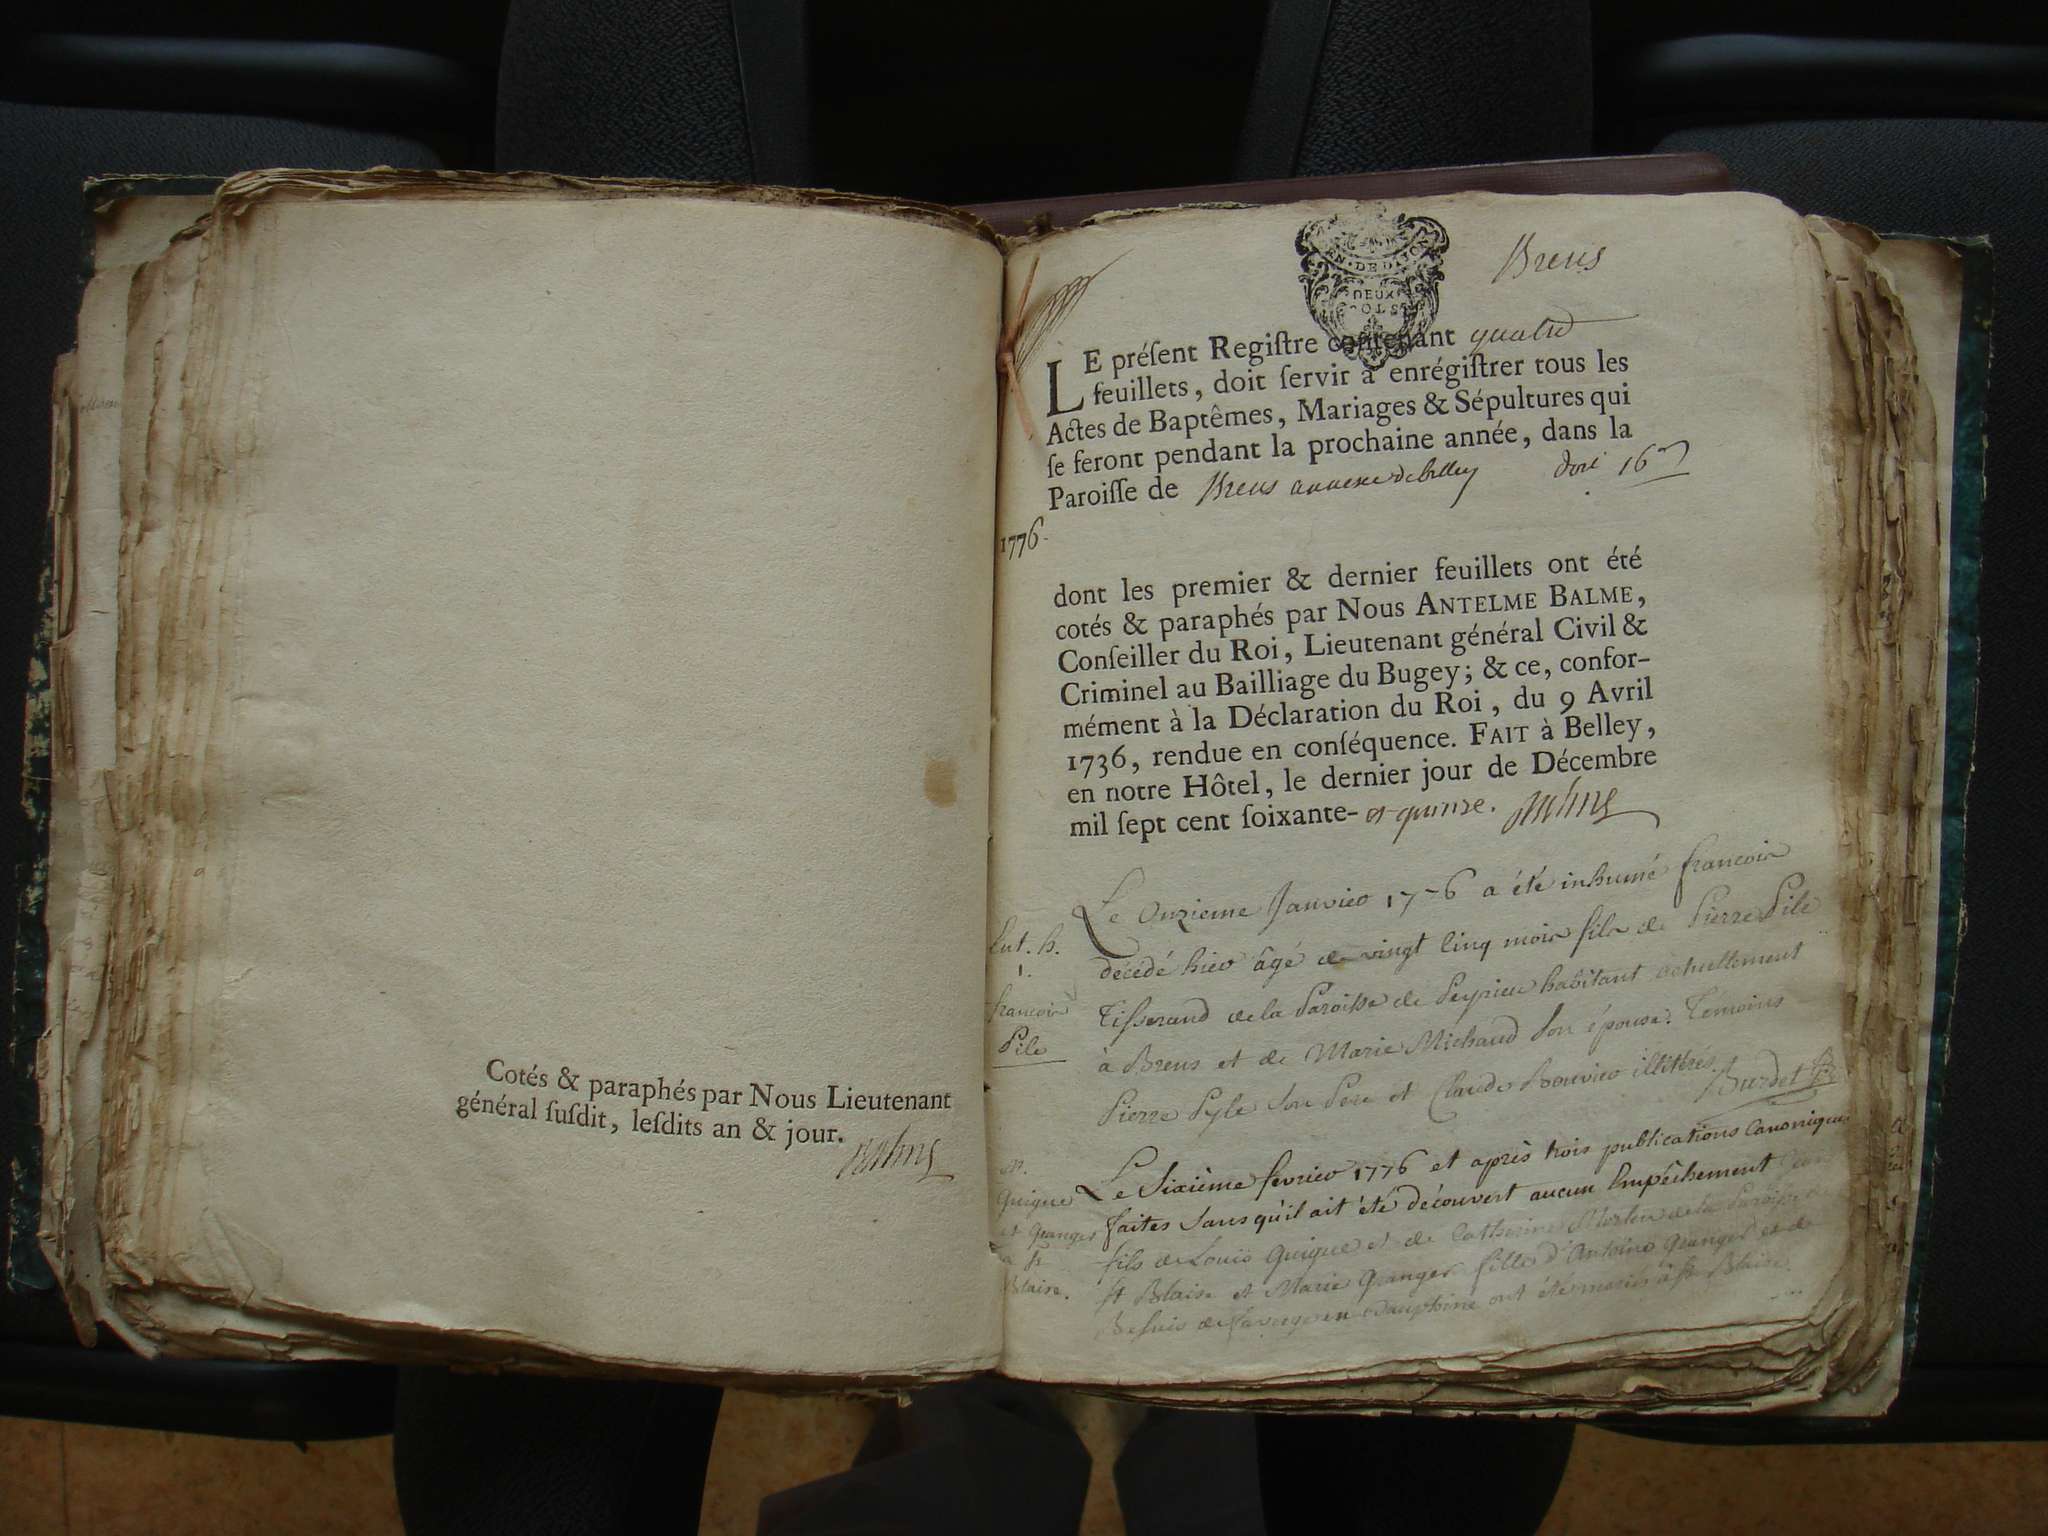 Cotés & paraphés par Nous Lieutenant
général ſuſdit, leſdits an & jour.
Brens
DEUX
SOLS
LE préſent Regiſtre contenant quatre
feuillets, doit ſervir à enrégiſtrer tous les
Actes de Baptêmes, Mariages & Sépultures qui
ſe feront pendant la prochaine année, dans la
Paroiſſe de Brens annexe de belley
1776.
dont les premier & dernier feuillets ont été
cotés & paraphés par Nous ANTELME BALME,
Conſeiller du Roi, Lieutenant général Civil &
Criminel au Bailliage du Bugey; & ce, confor-
mément à la Déclaration du Roi, du 9 Avril
1736, rendue en conſéquence. FAIT à Belley,
en notre Hôtel, le dernier jour de Décembre
mil ſept cent ſoixante- et quinze. Balme
Le Onzieme Janvier 1776 a été inhumé francois
décédé hier agé de vingt cinq mois fils de Pierre Pile
Tisserand de la Paroisse de Peyrieu habitant actuellement
à Brens et de Marie Michaud son épouse. Temoins
Pierre Pyle son Pere et Claude Bouvier illitéres. Burdet
francois
Pile
Le Sixième fevrier 1776 et après trois publications Canoniques
faites sans qu'il ait été découvert aucun Empêchement
fils de Louis Guigue et de Catherine de la Paroisse
St Blaise et Marie Granger fille d'Antoine Granger et de
en Dauphine ont été mariés à St Blaise
Guigue
et Granger
a St
Blaise.